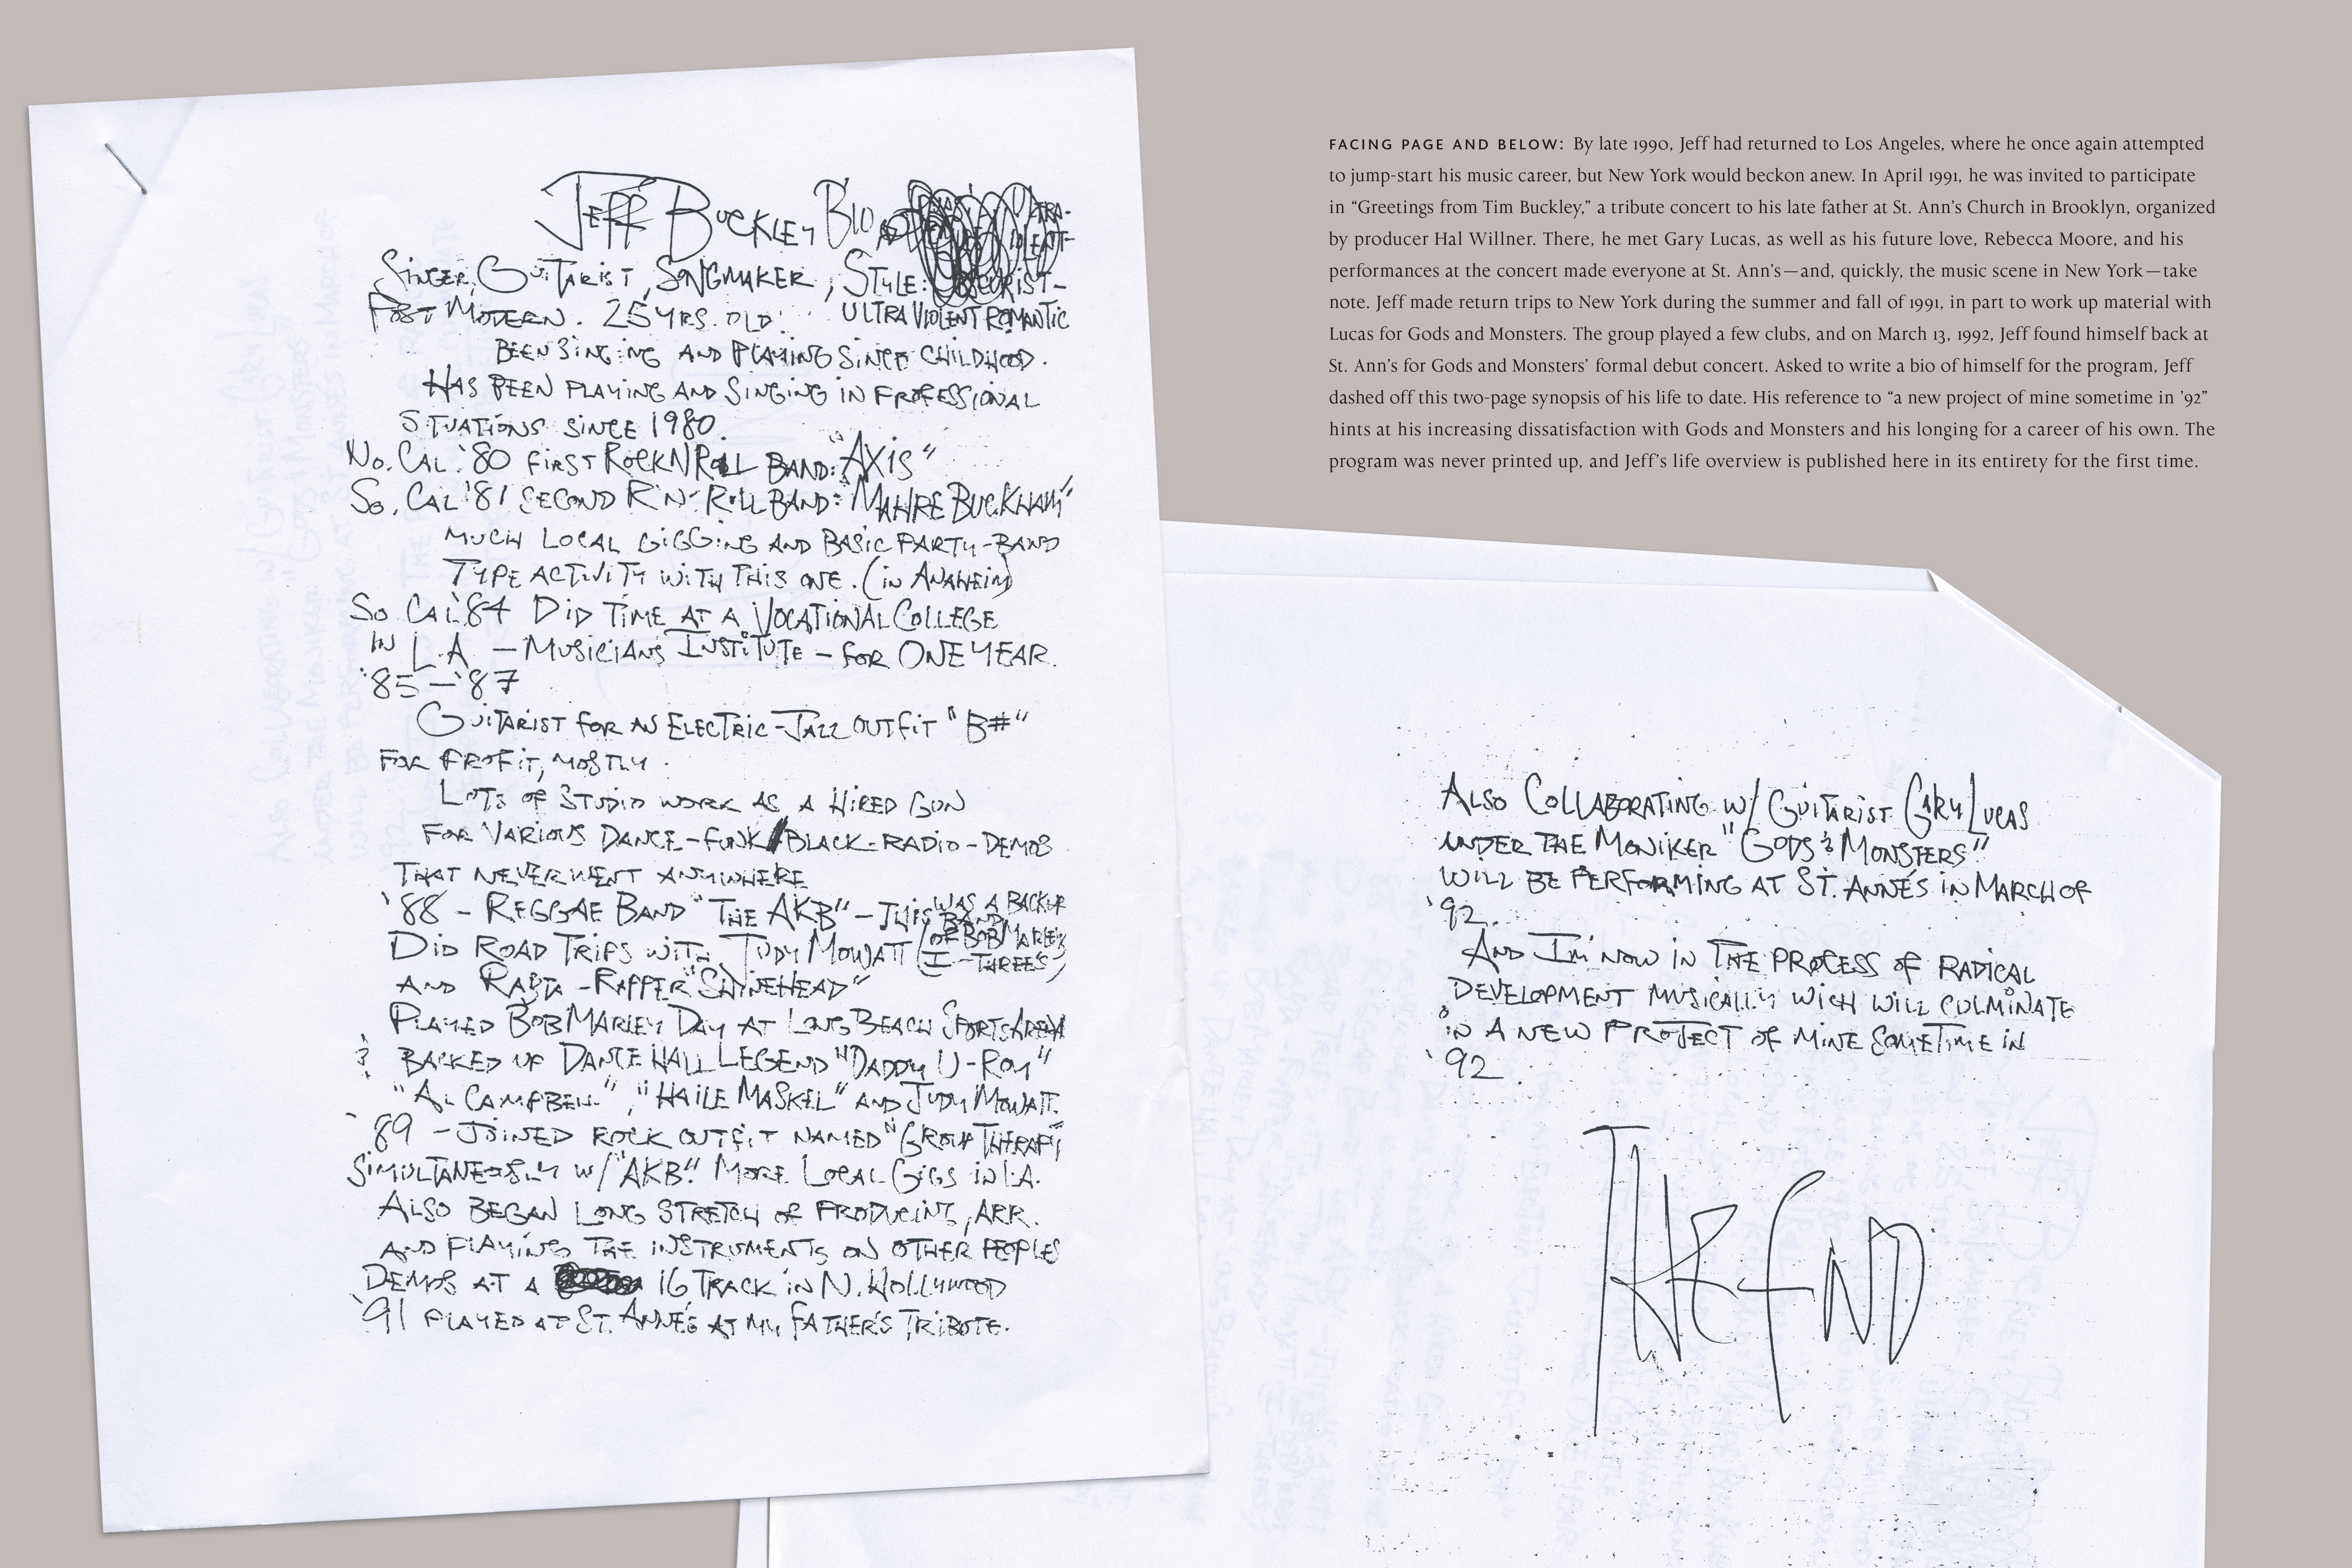 Jeff Buckley Bio
Singer, Guitarist, Songmaker, Style: Obscurist-
Post Modern. 25 yrs. old. ULTRA VIOLENT ROMANTIC
BEEN SINGING AND PLAYING SINCE CHILDHOOD.
HAS BEEN PLAYING AND SINGING IN PROFESSIONAL
SITUATIONS SINCE 1980.
No. Cal. '80 FIRST ROCK N ROLL BAND: "AXIS"
So. Cal '81 SECOND R'N'ROLL BAND: "MAHRE BUCKHAM"
MUCH LOCAL GIGGING AND BASIC PARTY-BAND
TYPE ACTIVITY WITH THIS ONE. (IN ANAHEIM)
So. Cal '84 DID TIME AT A VOCATIONAL COLLEGE
IN L.A. — MUSICIANS INSTITUTE — FOR ONE YEAR.
'85 — '87
GUITARIST FOR AN ELECTRIC-JAZZ OUTFIT "B#"
FOR PROFIT, MOSTLY.
LOTS OF STUDIO WORK AS A HIRED GUN
FOR VARIOUS DANCE-FUNK/BLACK-RADIO-DEMOS
THAT NEVER WENT ANYWHERE
'88 - REGGAE BAND "THE AKB" - THIS WAS A BACKUP BAND
DID ROAD TRIPS WITH JUDY MOWATT (OF BOB MARLEY'S I-THREES)
AND RASTA-RAPPER "SHINEHEAD"
PLAYED BOB MARLEY DAY AT LONG BEACH SPORTS ARENA
& BACKED UP DANCE HALL LEGEND "DADDY U-ROY"
"AL CAMPBELL", "HAILE MASKEL" AND JUDY MOWATT.
'89 - JOINED ROCK OUTFIT NAMED "GROUP THERAPY"
SIMULTANEOUSLY W/ "AKB". MORE LOCAL GIGS IN L.A.
ALSO BEGAN LONG STRETCH OF PRODUCING, ARR.
AND PLAYING THE INSTRUMENTS ON OTHER PEOPLES
DEMOS AT A 16 TRACK IN N. HOLLYWOOD
'91 PLAYED AT ST. ANNE'S AT MY FATHER'S TRIBUTE.
FACING PAGE AND BELOW: By late 1990, Jeff had returned to Los Angeles, where he once again attempted
to jump-start his music career, but New York would beckon anew. In April 1991, he was invited to participate
in “Greetings from Tim Buckley,” a tribute concert to his late father at St. Ann’s Church in Brooklyn, organized
by producer Hal Willner. There, he met Gary Lucas, as well as his future love, Rebecca Moore, and his
performances at the concert made everyone at St. Ann’s—and, quickly, the music scene in New York—take
note. Jeff made return trips to New York during the summer and fall of 1991, in part to work up material with
Lucas for Gods and Monsters. The group played a few clubs, and on March 13, 1992, Jeff found himself back at
St. Ann’s for Gods and Monsters’ formal debut concert. Asked to write a bio of himself for the program, Jeff
dashed off this two-page synopsis of his life to date. His reference to “a new project of mine sometime in ’92”
hints at his increasing dissatisfaction with Gods and Monsters and his longing for a career of his own. The
program was never printed up, and Jeff’s life overview is published here in its entirety for the first time.
ALSO COLLABORATING W/ GUITARIST GARY LUCAS
UNDER THE MONIKER "GODS & MONSTERS"
WILL BE PERFORMING AT ST. ANNE'S IN MARCH OF
'92.
AND I'M NOW IN THE PROCESS OF RADICAL
DEVELOPMENT MUSICALLY WICH WILL CULMINATE
IN A NEW PROJECT OF MINE SOMETIME IN
'92.
THE END